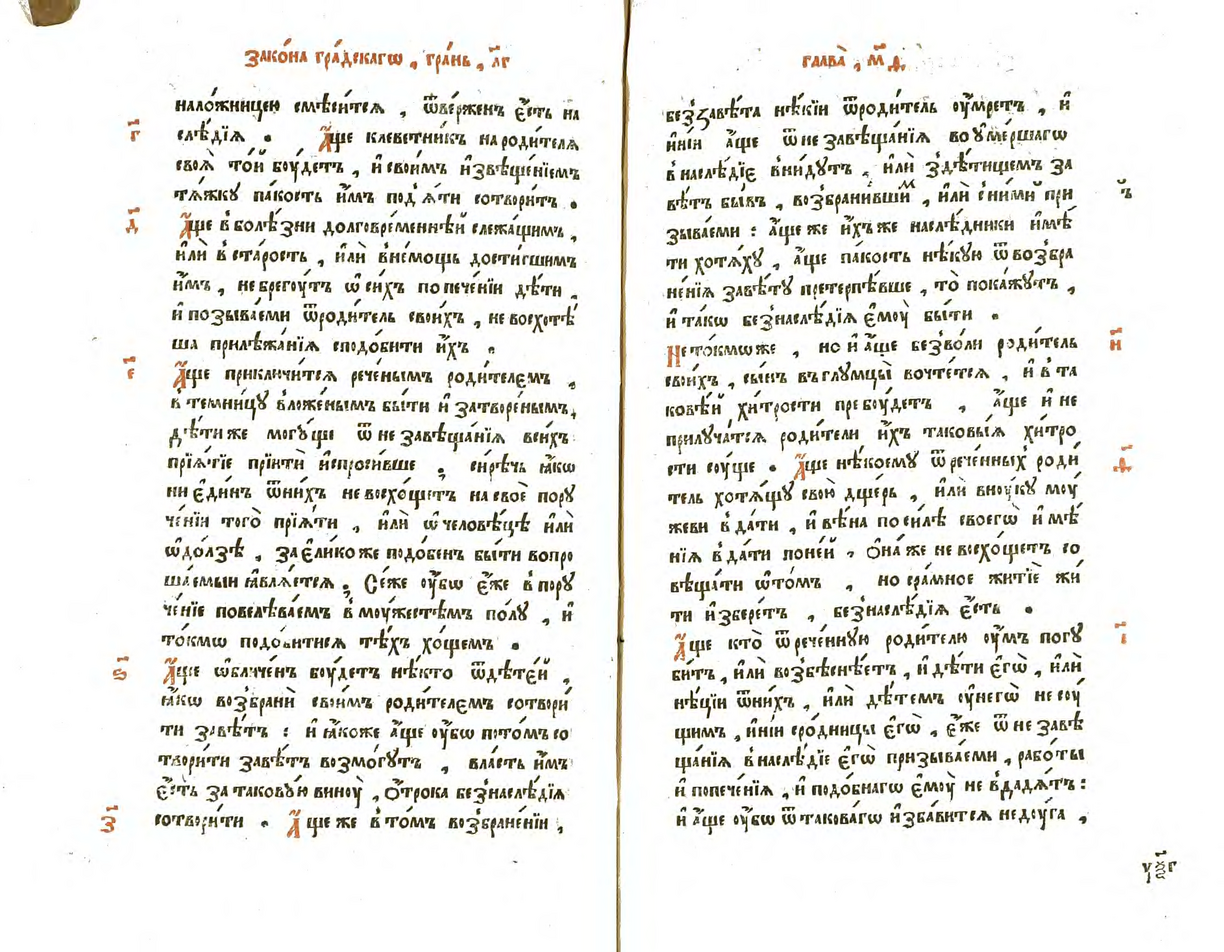 Зако́на гра́дскагѡ , гра́нь , л҃г
нало́жницею смѣ́сится , ѿве́рженъ є҆́сть на
г҃ слѣ́дїѧ . А҆́ще клеветни́къ на роди́телѧ
своѧ̀ то́й боу́детъ , и҆ свои́мъ и҆звѣще́нїемъ
тѧ́жку па́кость и҆̀мъ под̾ѧ́ти сотвори́тъ .
д҃ А҆́ще в̾ болѣ́зни долговре́меннѣй слежа́щимъ ,
и҆лѝ в̾ ста́рость , и҆лѝ в̾не́мощь дости́гшимъ
и҆̀мъ , не брегоу́тъ ѡ҆ си́хъ попече́нїи дѣ́ти ,
и҆ позыва́еми ѿроди́тель свои́хъ , не восхотѣ́
ша прилѣжа́нїѧ сподо́бити и҆́хъ .
е҃ А҆́ще приключи́тсѧ рече́нымъ роди́телємъ ,
в̾ темни́цу вложе́нымъ бы́ти и҆ затворе́нымъ ,
дѣ́ти же могу́щи ѿ не завѣща́нїѧ всѣ́хъ
прїѧ́тїе прїити и҆спроси́вше , си́рѣчь ꙗ҆́кѡ
ни є҆ди́нъ ѿни́хъ не восхо́щетъ на своѐ пору
че́нїи того̀ прїѧ́ти , и҆лѝ ѡ҆ человѣ́цѣ и҆лѝ
ѡ҆до́лзѣ , за є҆ли́ко же подо́бенъ бы́ти вопро
ша́емыи ꙗ҆влѧ́етсѧ , Сѐже оу҆́бѡ є҆́же в̾ пору
че́нїе повелѣва́емъ в̾ моу́жестѣмъ полу̀ , и҆
то́кмѡ подо́битисѧ тѣ́хъ хо́щемъ .
ѕ҃ А҆́ще ѡ҆бличе́нъ боу́детъ нѣ́кто ѿдѣте́й ,
ꙗ҆́кѡ возбранѝ свои́мъ роди́телємъ сотвори́
ти завѣ́тъ : и҆ ꙗ҆́коже а҆́ще оу҆́бѡ пото́мъ со
твори́ти завѣ́тъ возмо́гутъ , вла́сть и҆̀мъ
є҆́сть за такову́ю виноу̀ , ѻ҆́трока без̾наслѣ́дїѧ
з҃ сотвори́ти . А҆́ще же в̾ то́мъ возбране́нїи ,
глава̀ , м҃д
без̾завѣ́та нѣ́кїи ѿроди́тель оу҆́мретъ , и҆
и҆ні́и а҆́ще ѿ не завѣща́нїѧ во оу҆ме́ршагѡ
в̾ наслѣ́дїє вни́дутъ , и҆лѝ здѣ́тищемъ за
вѣ́тъ бы́въ , возбрани́вшим , и҆лѝ с ни́ми при
зыва́еми : а҆́ще же и҆́хъ же наслѣ́дники и҆мѣ́
ти хотѧ́ху , а҆́ще па́кость нѣ́кую ѿ возбра
не́нїѧ завѣ́ту претерпѣ́вше , то̀ пока́жутъ ,
и҆ та́кѡ без̾наслѣ́дїѧ є҆моу̀ бы́ти .
и҃ Не то́кмѡ же , но и҆ а҆́ще без̾во́ли роди́тель
свои́хъ , сы́нъ въ глумцы̀ вочте́тсѧ , и҆ в̾ та
ковѣ́й хи́трости пребоу́детъ , а҆́ще и҆ не
прилуча́тсѧ роди́тели и҆́хъ таковы́ѧ хи́тро
ѳ҃ сти соу́ще . А҆́ще нѣ́коему ѿ рече́нных̾ роди́
тель хотѧ́щу свою̀ дще́рь , и҆лѝ вноу́ку моу́
жеви в̾да́ти , и҆ вѣ́на по си́лѣ своегѡ̀ и҆мѣ́
нїѧ в̾да́ти по не́й . Ѻ҆на́ же не восхо́щетъ со
вѣща́ти ѡ҆то́мъ , но сра́мное житїѐ жи́
ти и҆збере́тъ , без̾наслѣ́дїѧ є҆́сть .
і҃ А҆́ще кто̀ ѿ рече́нную роди́телю оу҆́мъ погу
би́тъ , и҆лѝ возбѣснѣ́етъ , и҆ дѣ́ти є҆гѡ̀ , и҆лѝ
нѣ́цїи ѿни́хъ , и҆лѝ дѣ́темъ оу҆ негѡ̀ не соу́
щимъ , и҆ні́и сро́дницы є҆гѡ̀ , є҆́же ѿ не завѣ
ща́нїѧ в̾ наслѣ́дїє є҆гѡ̀ призыва́еми , рабо́ты
и҆ попече́нїѧ , и҆ подо́бнагѡ є҆моу̀ не в̾дадѧ́тъ :
и҆ а҆́ще оу҆́бѡ ѿ такова́гѡ и҆зба́витсѧ недоу́га ,